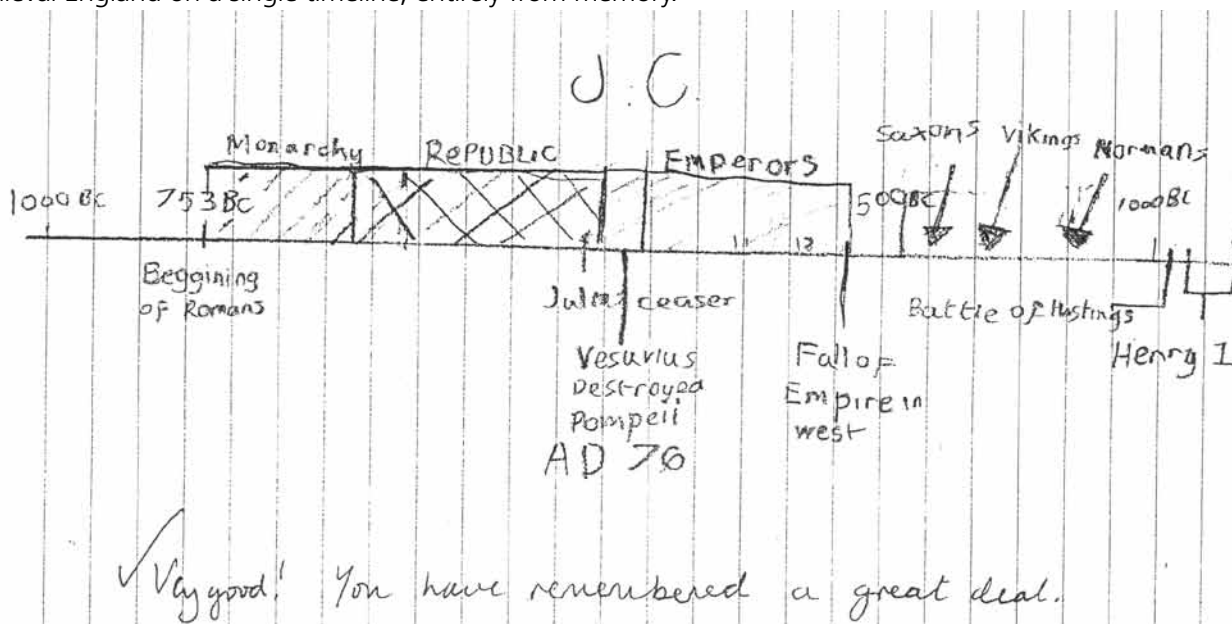 England on a single timeline, entirely from memory.
J.C.
Monarchy REPUBLIC Emperors Saxons Vikings Normans
1000 BC 753 BC 500BC 1000BC
Beggining
of Romans
Julius ceaser
Battle of Hastings
Henry 1
Vesuvius
Destroyed
Pompeii
AD 76
Fall of
Empire in
west
Very good! You have remembered a great deal.